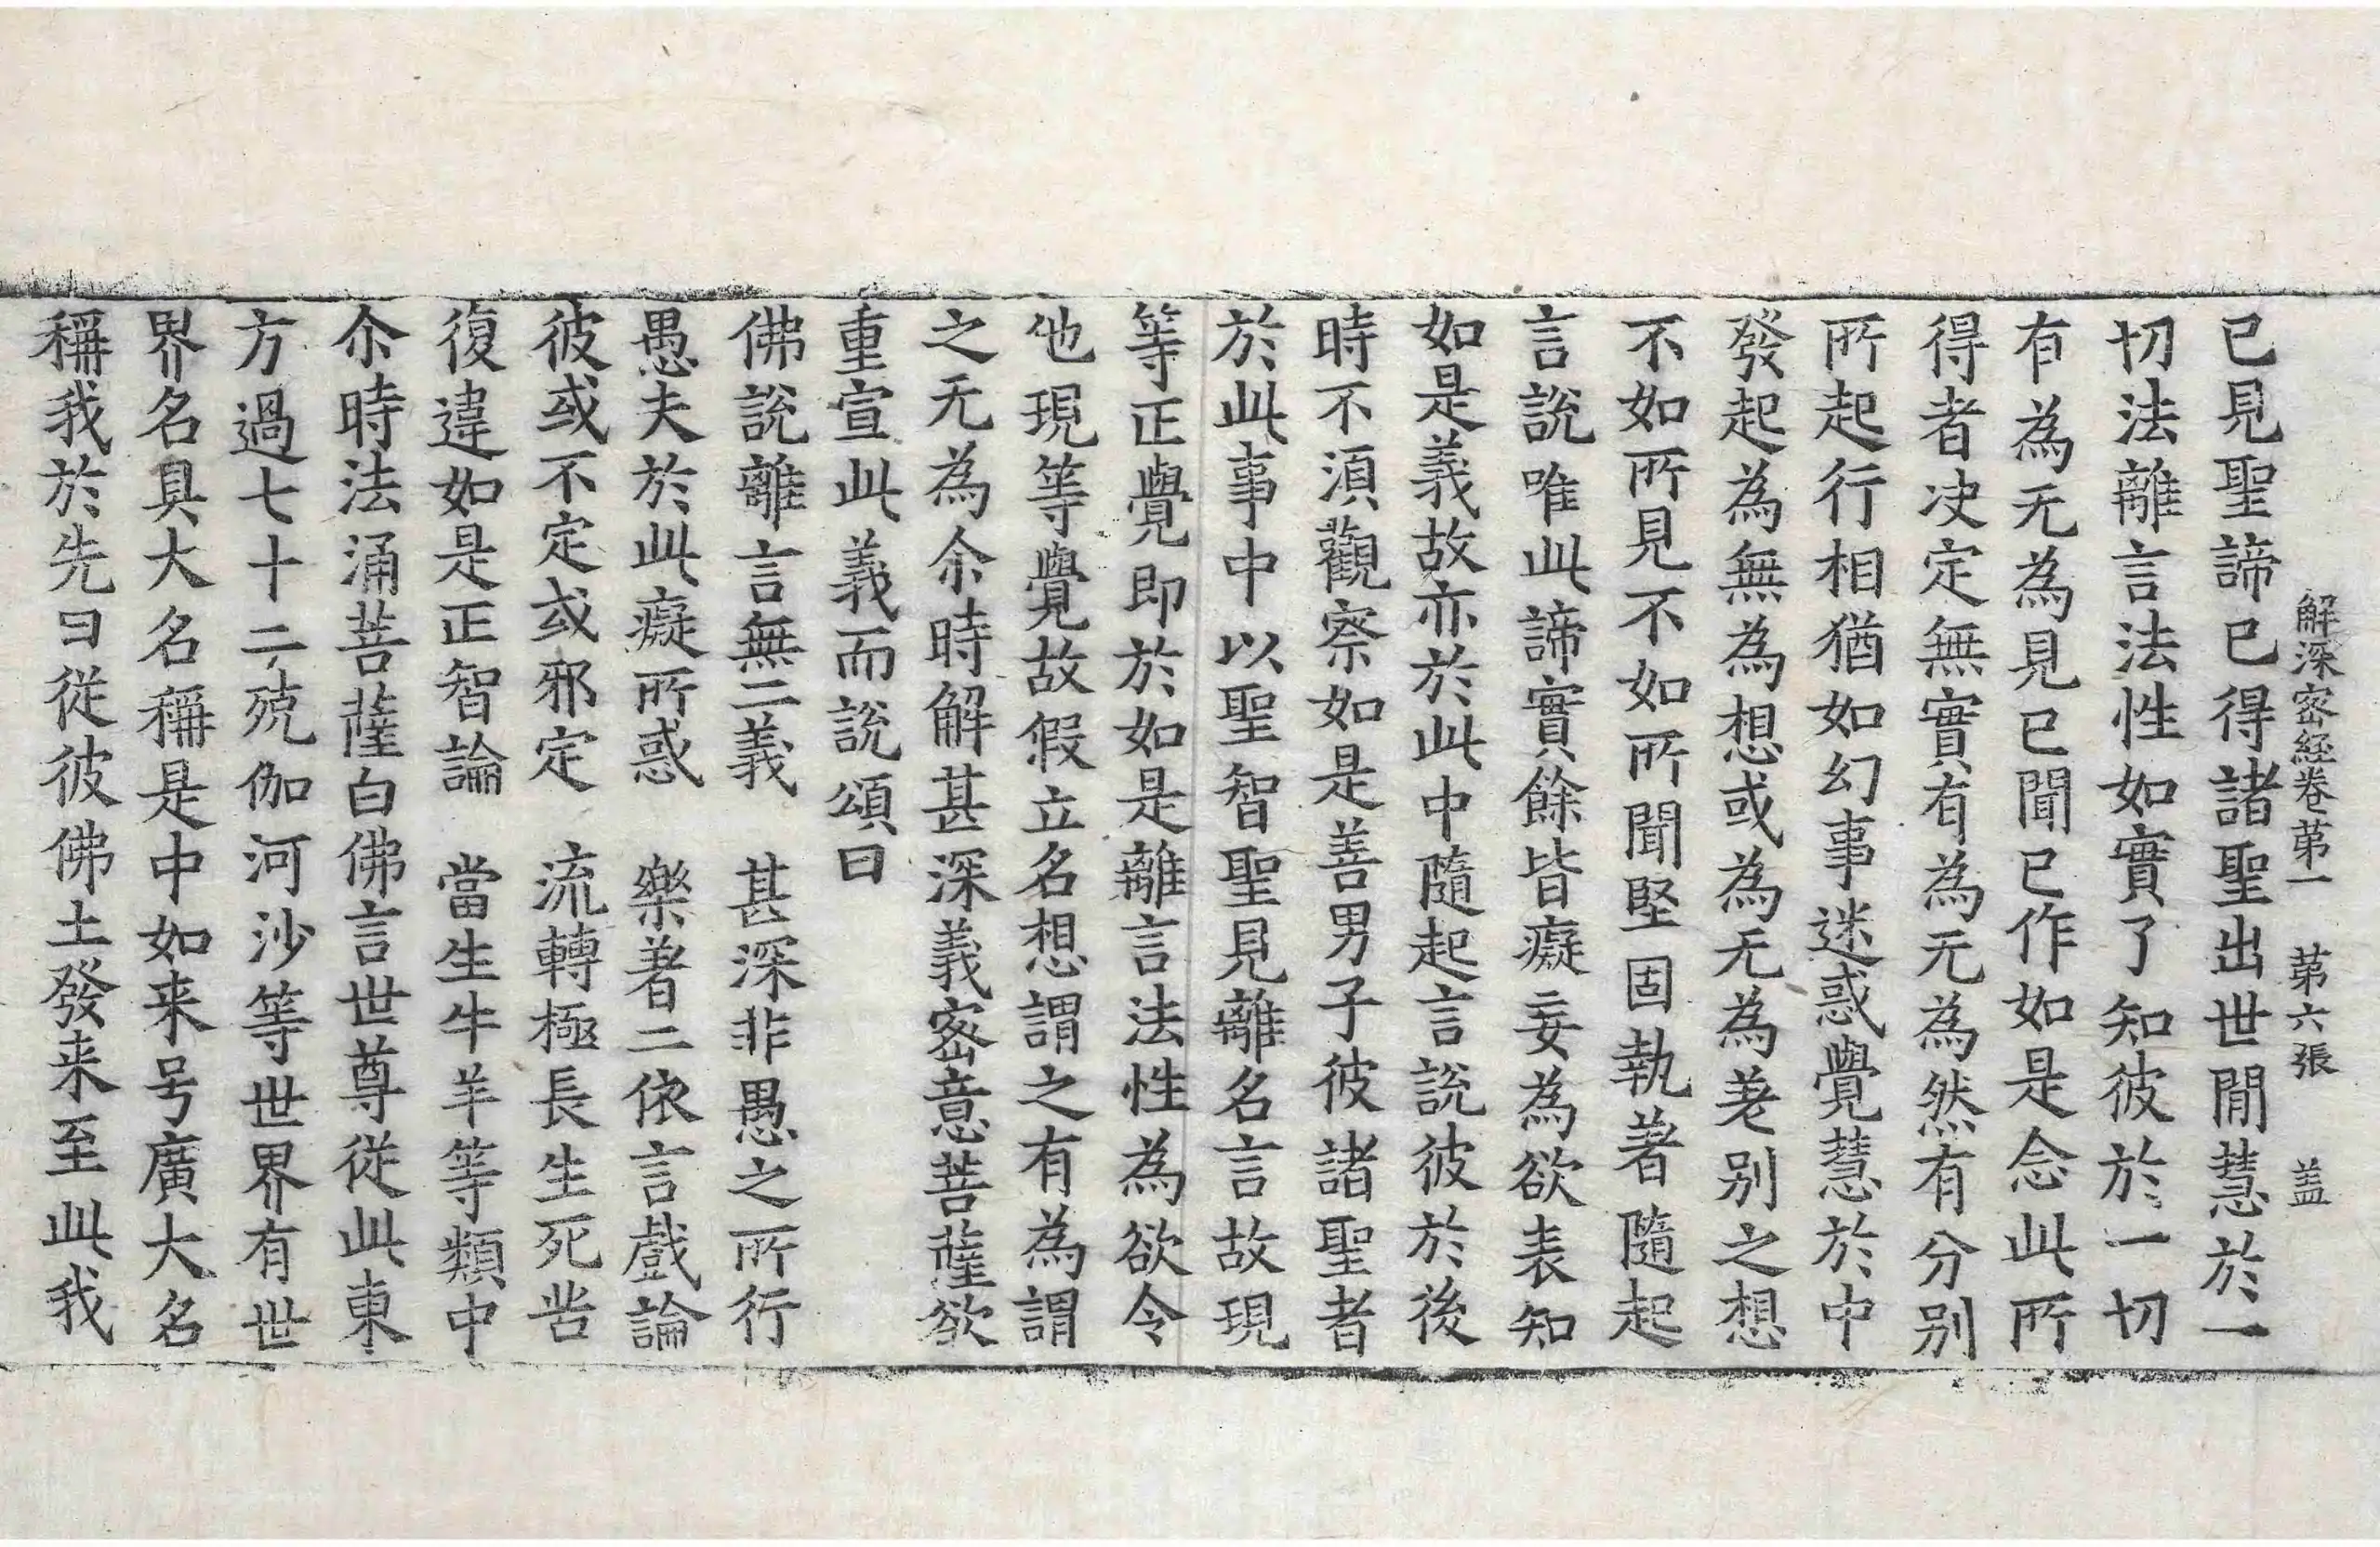 解深密經卷第一 第六張 盖
已見聖諦已得諸聖出世閒慧於一
切法離言法性如實了知彼於一切
有為无為見已聞已作如是念此所
得者决定無實有為无為然有分别
所起行相猶如幻事迷惑覺慧於中
發起為無為想或為无為差别之想
不如所見不如所聞堅固執著隨起
言說唯此諦實餘皆癡妄為欲表知
如是義故亦於此中隨起言說彼於後
時不湏觀察如是善男子彼諸聖者
於此事中以聖智聖見離名言故現
等正覺即於如是離言法性為欲令
他現等覺故假立名想謂之有為謂
之无為尒時解甚深義密意菩薩欲
重宣此義而說頌曰
佛說離言無二義 甚深非愚之所行
愚夫於此癡所惑 樂著二依言戲論
彼或不定或邪定 流轉極長生死苦
復違如是正智論 當生牛羊等類中
尒時法涌菩薩白佛言世尊從此東
方過七十二殑伽河沙等世界有世
界名具大名稱是中如来号廣大名
稱我於先日從彼佛土發来至此我